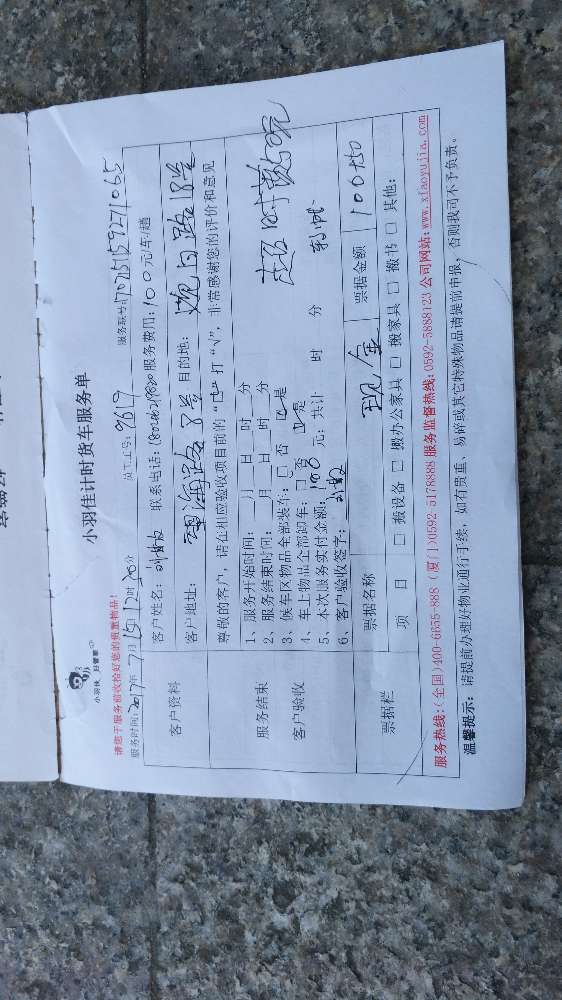 小羽佳计时货车服务单
小羽佳，归管家
请您于服务前收捡好您的贵重物品！
服务时间：2017年7月15日12时30分 员工工号：9617 服务联络：17025159271065
客户资料
客户姓名： 联系电话： 服务费用：100元/车/趟
客户地址： 海路8号 目的地：观日路18号
尊敬的客户，请在相应验收项目前的“□”打“√”，非常感谢您的评价和意见
服务结束
客户验收
1、服务开始时间：__月__日__时__分
2、服务结束时间：__月__日__时__分
3、候车区物品全部装车：□ 否 ☑ 是
4、车上物品全部卸车：□ 否 ☑ 是
5、本次服务实付金额：100元；共计 时 分
6、客户验收签字：
超时费50元
票据栏
票据名称 现金 票据金额 100+50
项 目 □ 搬设备 □ 搬办公家具 □ 搬家具 □ 搬书 □ 其他：
服务热线：(全国)400-6855-888 (厦门)0592-5178888 服务监督热线：0592-5888123 公司网站：www.xiaoyujia.com
温馨提示：请提前办理好物业通行手续，如有贵重、易碎或其它特殊物品请提前申报，否则我司可不予负责。